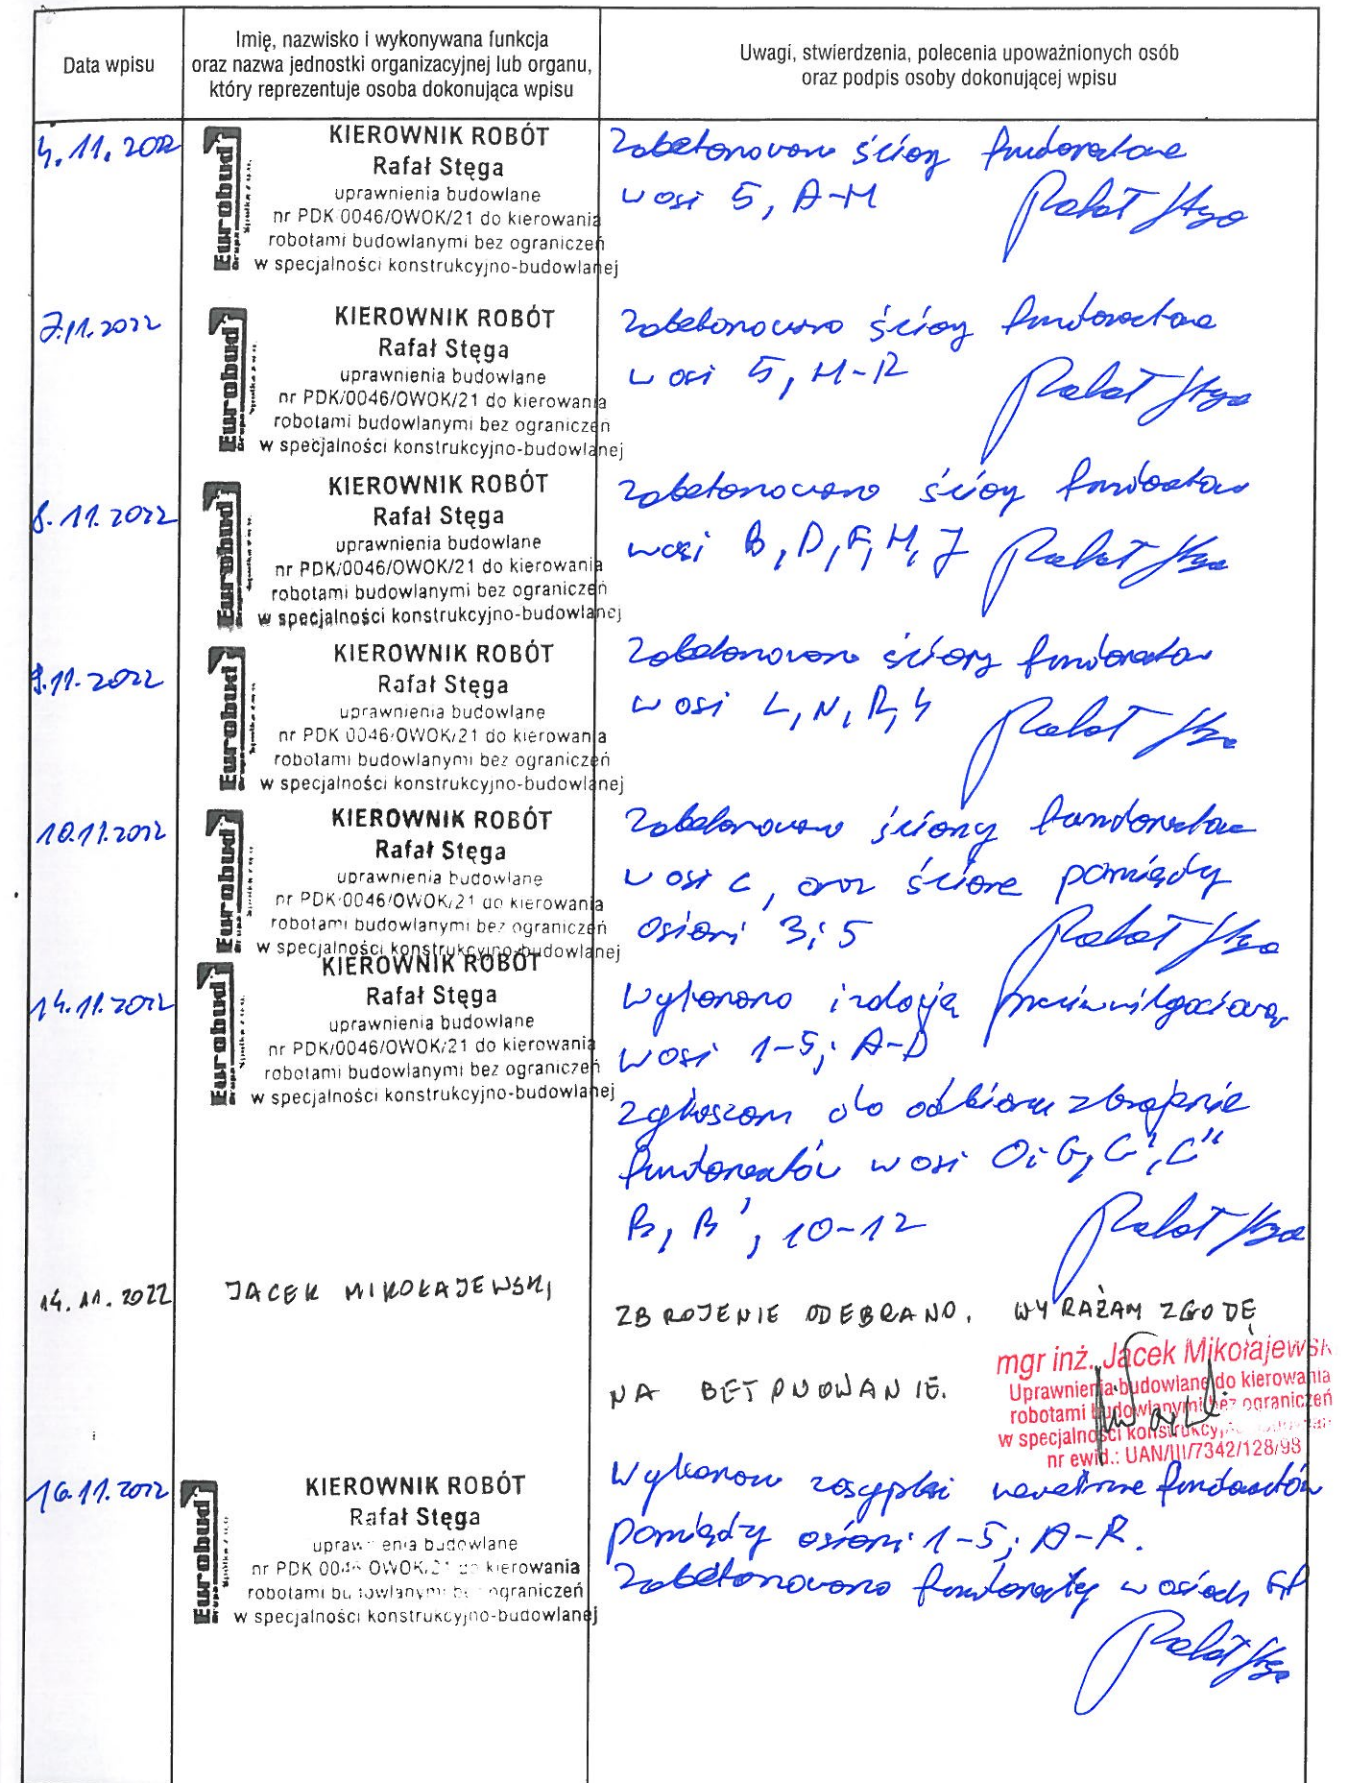 Data wpisu
Imię, nazwisko i wykonywana funkcja
oraz nazwa jednostki organizacyjnej lub organu,
który reprezentuje osoba dokonująca wpisu
Uwagi, stwierdzenia, polecenia upoważnionych osób
oraz podpis osoby dokonującej wpisu
4.11.2022
Eurobud
KIEROWNIK ROBÓT
Rafał Stęga
uprawnienia budowlane
nr PDK 0046/OWOK/21 do kierowania
robotami budowlanymi bez ograniczeń
w specjalności konstrukcyjno-budowlanej
Zabetonowano ściany fundamentowe
w osi 5, A-M
Rafał Stęga
7.11.2022
Eurobud
KIEROWNIK ROBÓT
Rafał Stęga
uprawnienia budowlane
nr PDK/0046/OWOK/21 do kierowania
robotami budowlanymi bez ograniczeń
w specjalności konstrukcyjno-budowlanej
Zabetonowano ściany fundamentowe
w osi 5, M-R
Rafał Stęga
8.11.2022
Eurobud
KIEROWNIK ROBÓT
Rafał Stęga
uprawnienia budowlane
nr PDK/0046/OWOK/21 do kierowania
robotami budowlanymi bez ograniczeń
w specjalności konstrukcyjno-budowlanej
Zabetonowano ściany
w osi B, D, F, H, J
Rafał Stęga
9.11.2022
Eurobud
KIEROWNIK ROBÓT
Rafał Stęga
uprawnienia budowlane
nr PDK 0046/OWOK/21 do kierowania
robotami budowlanymi bez ograniczeń
w specjalności konstrukcyjno-budowlanej
Zabetonowano ściany
w osi L, N, R, 4
Rafał Stęga
10.11.2022
Eurobud
KIEROWNIK ROBÓT
Rafał Stęga
uprawnienia budowlane
nr PDK 0046/OWOK/21 do kierowania
robotami budowlanymi bez ograniczeń
w specjalności konstrukcyjno-budowlanej
Zabetonowano ściany fundamentowe
w osi C, oraz ścianę pomiędzy
osiami 3 i 5
Rafał Stęga
14.11.2022
Eurobud
KIEROWNIK ROBÓT
Rafał Stęga
uprawnienia budowlane
nr PDK/0046/OWOK/21 do kierowania
robotami budowlanymi bez ograniczeń
w specjalności konstrukcyjno-budowlanej
Wykonano izolację przeciwwilgociową
w osi 1-5; A-D
zgłaszam do odbioru zbrojenie
fundamentów w osi O i G, C', C''
B, B', 10-12
Rafał Stęga
14.11.2022
JACEK MIKOŁAJEWSKI
ZBROJENIE ODEBRANO. WYRAŻAM ZGODĘ
NA BETONOWANIE.
mgr inż. Jacek Mikołajewsk
Uprawnienia budowlane do kierowania
robotami budowlanymi bez ograniczeń
w specjalności
nr ewid.: UAN/III/7342/128/98
16.11.2022
Eurobud
KIEROWNIK ROBÓT
Rafał Stęga
uprawnienia budowlane
nr PDK 0046 OWOK/21 do kierowania
robotami budowlanymi bez ograniczeń
w specjalności konstrukcyjno-budowlanej
Wykonano zasypki fundamentów
pomiędzy osiami 1-5; A-R.
Zabetonowano fundamenty w osiach
Rafał Stęga